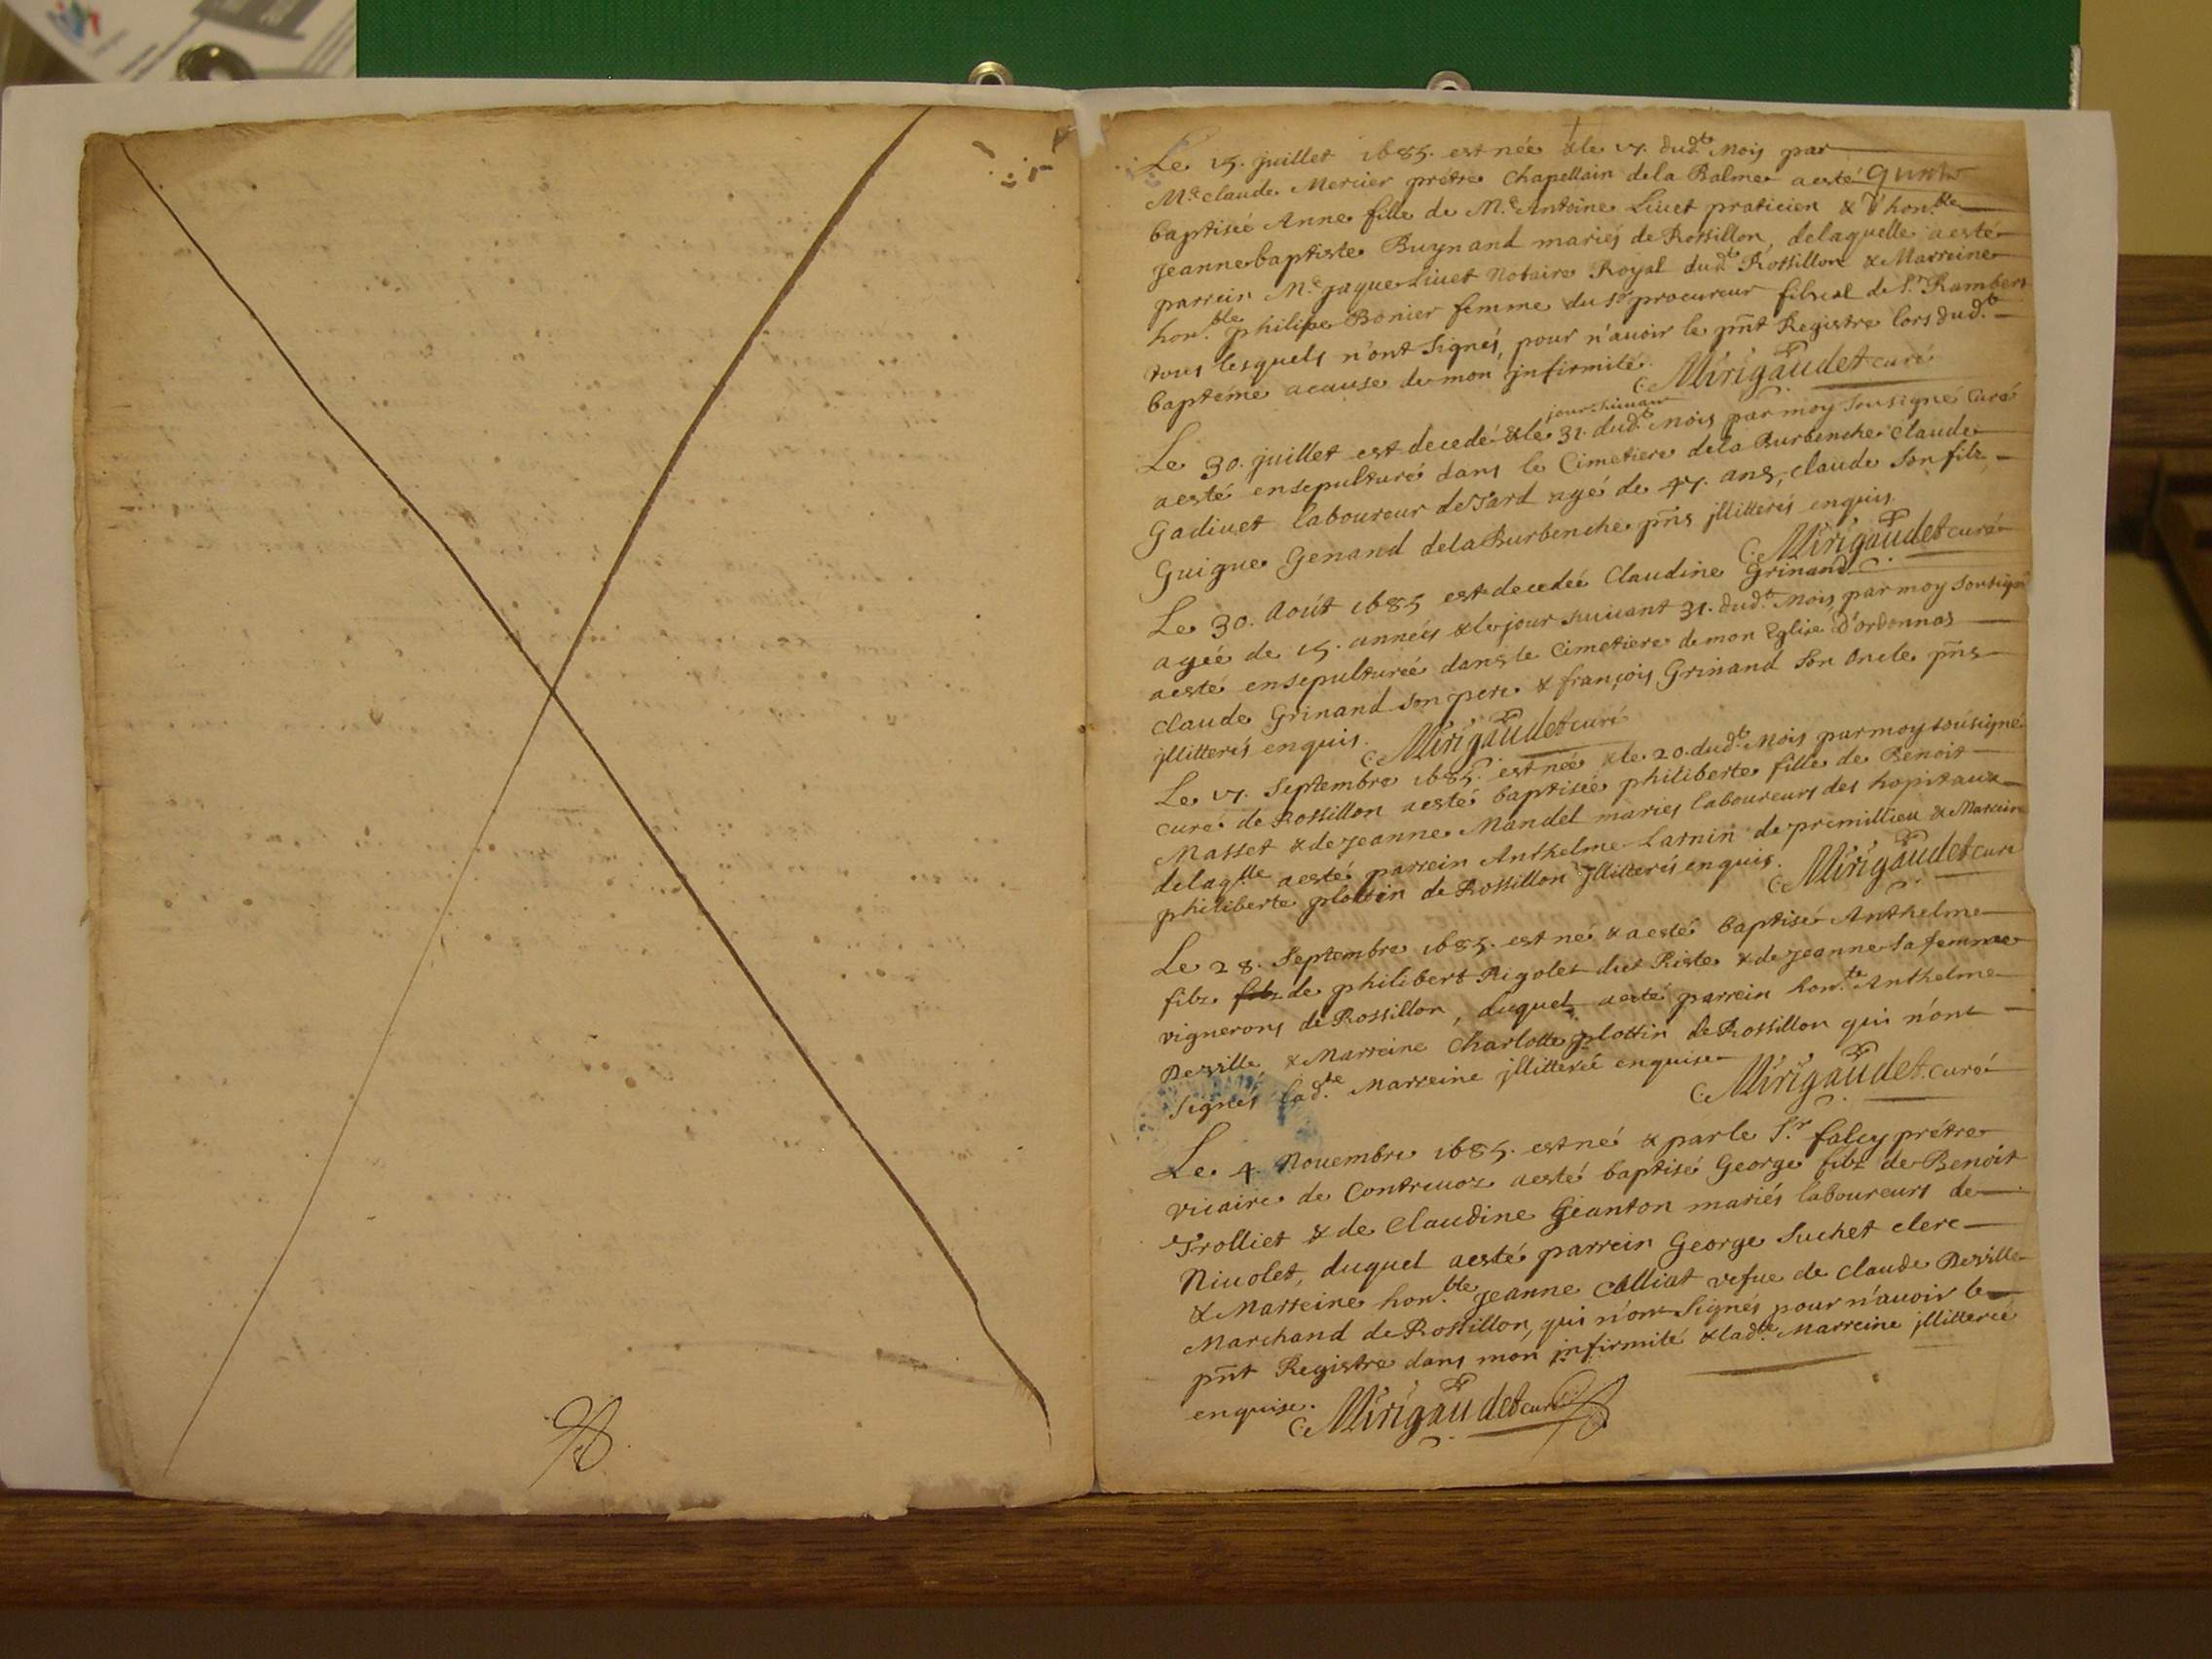 Le 15. juillet 1685. est née & le 17. dud.t Mois par
M.e claude Mercier prétre Chapellain dela Balme aesté
baptisée Anne fille de M.e Antoine Liuet praticien & d'hon.ble
Jeannebaptiste Buynand mariés de Rossillon, delaquelle aesté
parrein M.e jaque Liuet Notaire Royal dud.t Rossillon & Marreine
hon.ble philipe Bonier femme du s.r procureur fihscal de S.t Rambert
tous lesquels n'ont signés, pour n'auoir le pn̄t Registre lors dud.t
baptéme acause de mon jnfirmité. Mirigaudet curé
jour suiuant
Le 30. juillet est decedé & le 31. dud.t Mois par moy sousigné Curé
aesté ensepulturé dans le Cimetiere dela Burbenche Claude
Gadiuet laboureur de Tard agé de 47. ans, claude son filz
Guigue Genand dela Burbenche pn̄s jllitterés enquis.
Mirigaudet curé
Le 30. Août 1685 est decedée Claudine Grinand
agée de 15. années & le jour suiuant 31. dud.t Mois, par moy sousigné
aesté ensepulturée dans le Cimetiere de mon Eglise d'ordonnas
Claude Grinand son pere & françois Grinand son Oncle pn̄s
jllitterés enquis. Mirigaudet curé
Le 17. Septembre 1685. est née & le 20. dud.t Mois par moy sousigné
curé de Rossillon aesté baptisée philiberte fille de Benoit
Masset & de Jeanne Mandel mariés laboureurs des hopitaux
delaq.lle aesté parrein Anthelme Larnin de premillieu & Marreine
philiberte plottin de Rossillon jllitterés enquis. Mirigaudet curé
Le 28. Septembre 1685. est né & aesté baptisé Anthelme
filz filz de philibert Rigolet dict Riste & de Jeanne sa femme
vignerons de Rossillon, duquel aesté parrein hon.te Anthelme
Deville, & Marreine Charlotte plottin de Rossillon qui n'ont
signés lad.te Marreine jllitterée enquise Mirigaudet curé
Le 4. Nouembre 1685. est né & par le S.r falcy prétre
vicaire de Contreuoz aesté baptisé George filz de Benoit
Trolliet & de Claudine Geanton mariés laboureurs de
Niuolet, duquel aesté parrein George Suchet clerc
& Marreine hon.ble Jeanne Calliat vefue de Claude Deville
Marchand de Rossillon, qui n'ont signés pour n'auoir le
pn̄t Registre dans mon jnfirmité & lad.te Marreine jllitterée
enquise. Mirigaudet curé